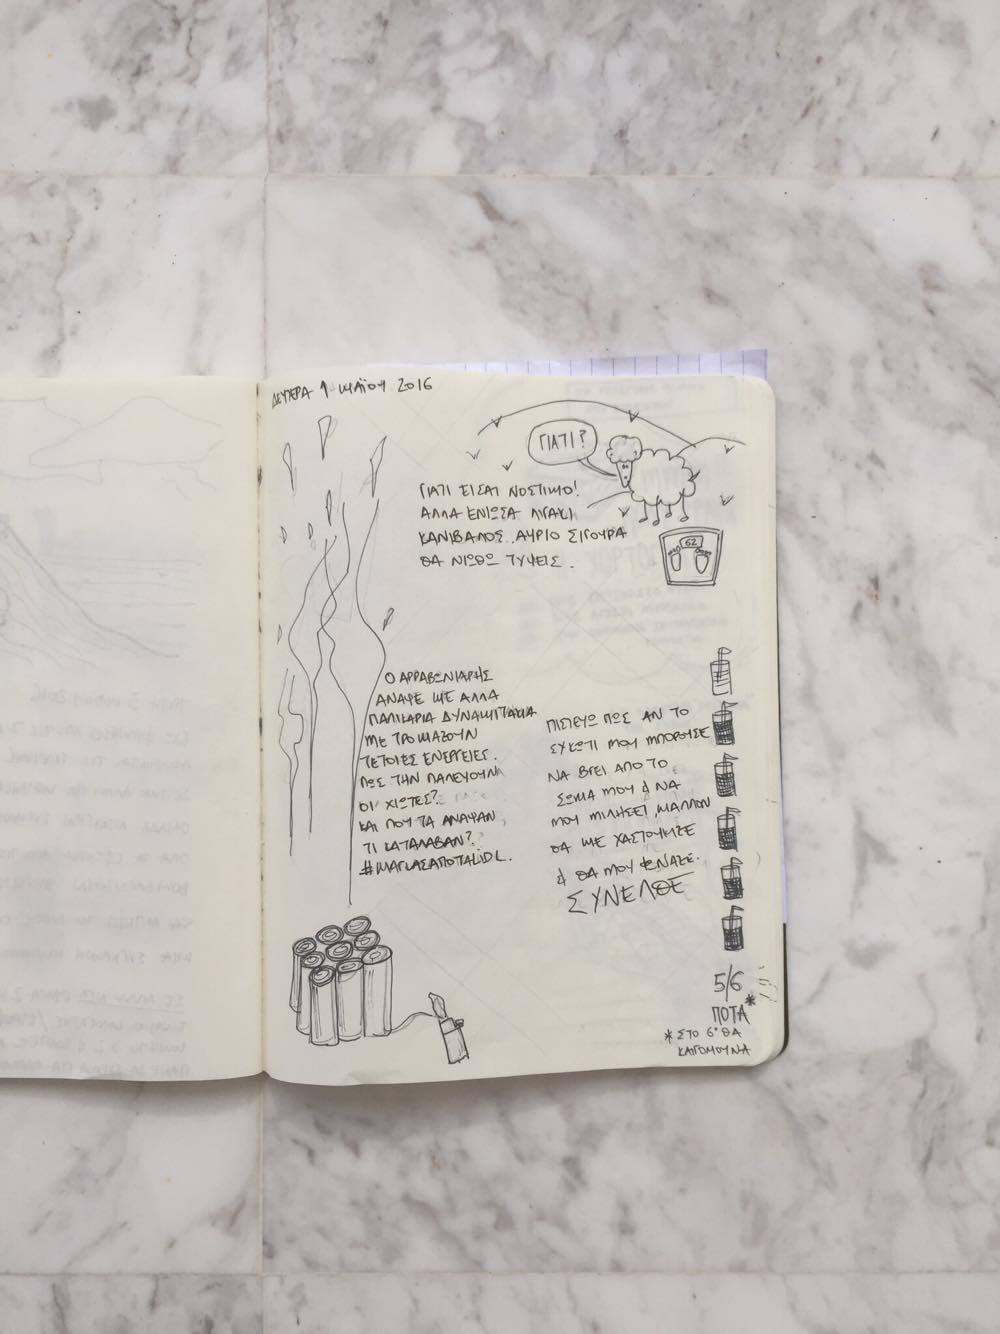 ΔΕΥΤΕΡΑ 1 ΜΑΪΟΥ 2016
ΓΙΑΤΙ?
ΓΙΑΤΙ ΕΙΣΑΙ ΝΟΣΤΙΜΟ!
ΑΛΛΑ ΕΝΙΩΣΑ ΛΙΓΑΚΙ
ΚΑΝΙΒΑΛΟΣ. ΑΥΡΙΟ ΣΙΓΟΥΡΑ
ΘΑ ΝΙΩΘΩ ΤΥΨΕΙΣ.
62
Ο ΑΡΡΑΒΩΝΙΑΡΗΣ
ΑΝΑΨΕ ΜΕ ΑΛΛΑ
ΠΑΛΙΚΑΡΙΑ ΔΥΝΑΜΙΤΑΚΙΑ
ΜΕ ΤΡΟΜΑΖΟΥΝ
ΤΕΤΟΙΕΣ ΕΝΕΡΓΕΙΕΣ.
ΠΩΣ ΤΗΝ ΠΑΛΕΥΟΥΝ
ΟΙ ΧΙΩΤΕΣ?
ΚΑΙ ΠΟΥ ΤΑ ΑΝΑΨΑΝ
ΤΙ ΚΑΤΑΛΑΒΑΝ?
#ΜΑΓΚΑΣΑΠΟΤΑLIDL.
ΠΙΣΤΕΥΩ ΠΩΣ ΑΝ ΤΟ
ΣΥΚΩΤΙ ΜΟΥ ΜΠΟΡΟΥΣΕ
ΝΑ ΒΓΕΙ ΑΠΟ ΤΟ
ΣΩΜΑ ΜΟΥ & ΝΑ
ΜΟΥ ΜΙΛΗΣΕΙ, ΜΑΛΛΟΝ
ΘΑ ΜΕ ΧΑΣΤΟΥΚΙΖΕ
& ΘΑ ΜΟΥ ΦΩΝΑΖΕ.
ΣΥΝΕΛΘΕ
5/6
ΠΟΤΑ*
* ΣΤΟ 6° ΘΑ
ΚΑΙΓΟΜΟΥΝΑ